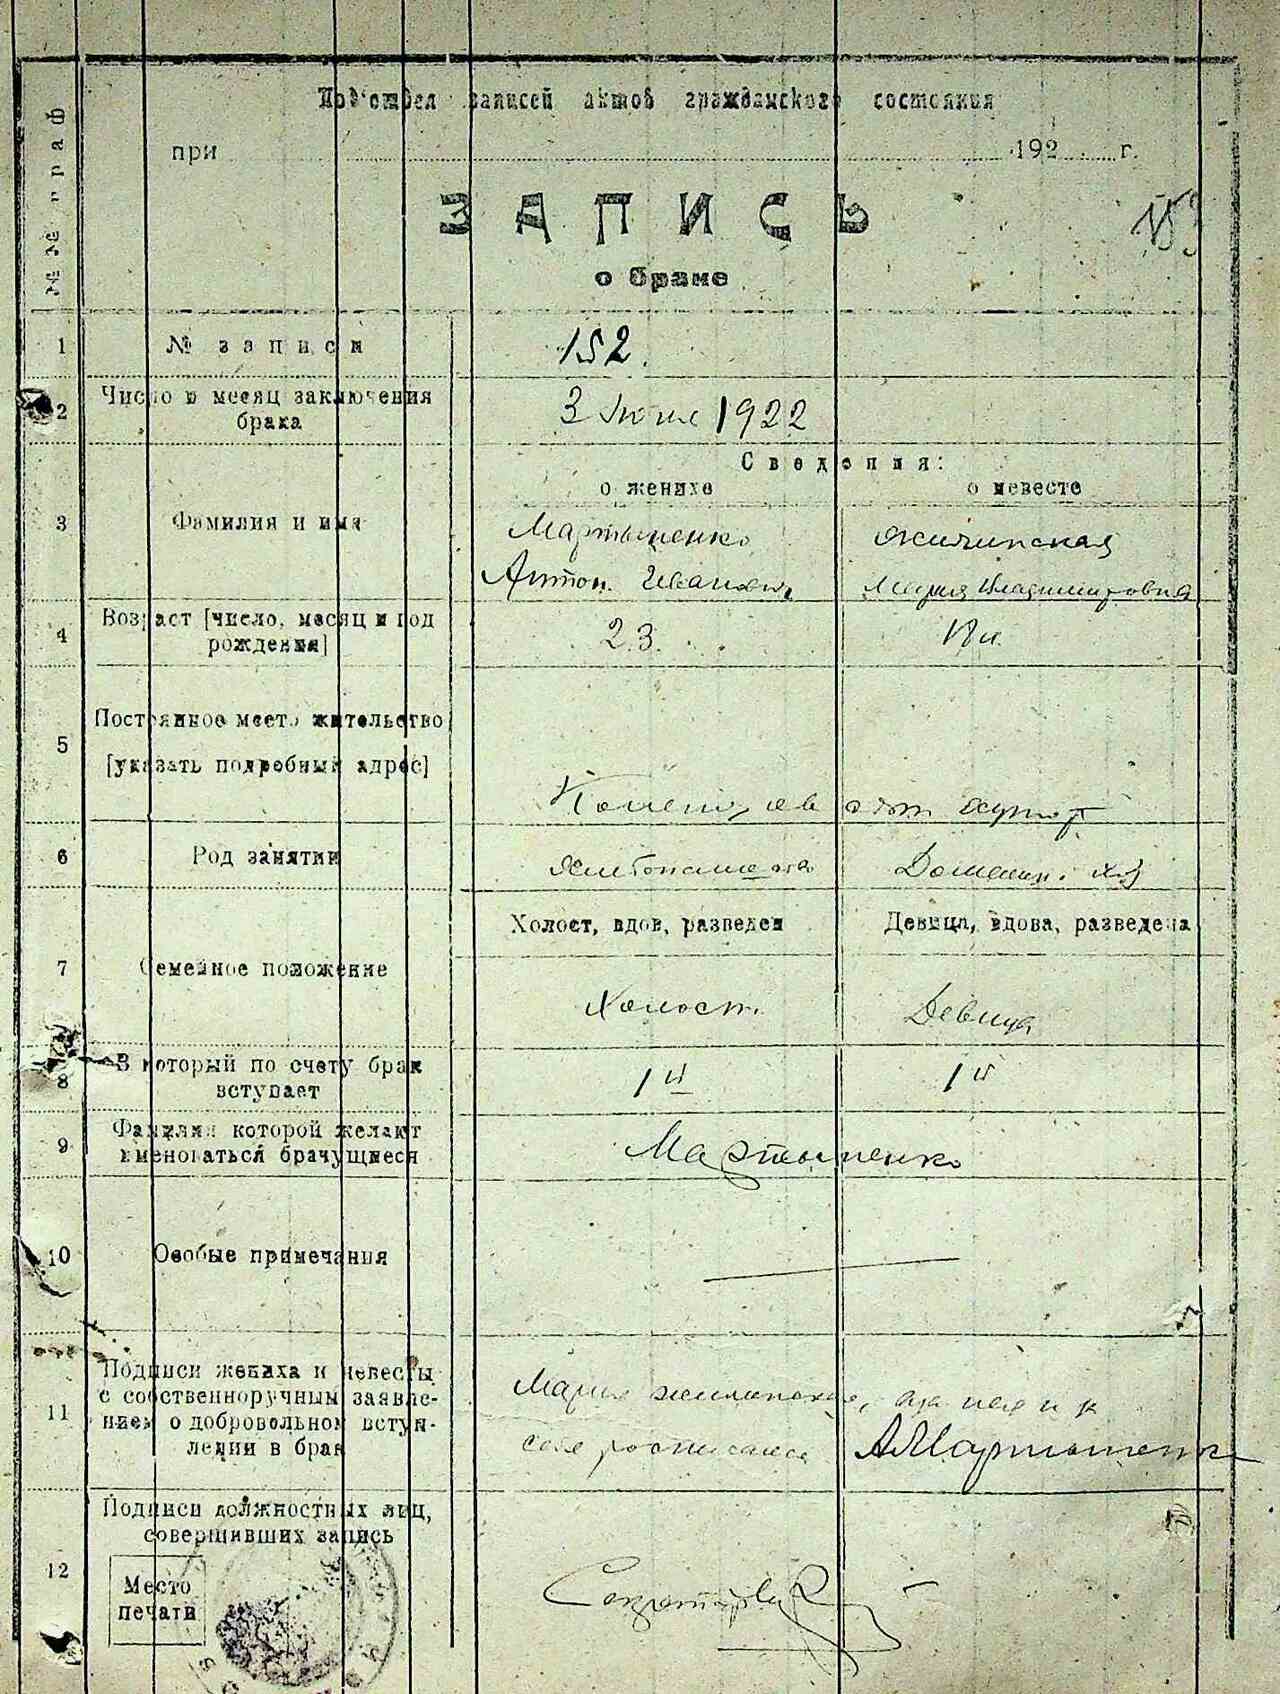 №№ граф
Под'отдел записей актов гражданского состояния
при 192 г.
ЗАПИСЬ
о браке
1 № записи 152.
2 Число и месяц заключения
брака
3 Июня 1922
Сведения:
о женихе о невесте
3 Фамилия и имя
Мартыненко
Антон Иванович
Мария Владимировна
4 Возраст [число, месяц и год
рождения]
23. 18 л.
5 Постоянное место жительство
[указать подробный адрес]
хутор
6 Род занятий
Хлебопашество Домашн. хоз
Холост, вдов, разведен Девица, вдова, разведена
7 Семейное положение
Холост. Девица
8 В который по счету брак
вступает
1й 1й
9 Фамилия которой желают
именоваться брачущиеся
Мартыненко
10 Особые примечания
11 Подписи жениха и невесты
с собственноручным заявле-
нием о добровольном вступ-
лении в брак
Мария
А Мартыненко
12 Подписи должностных лиц,
совершивших запись
Место
печати